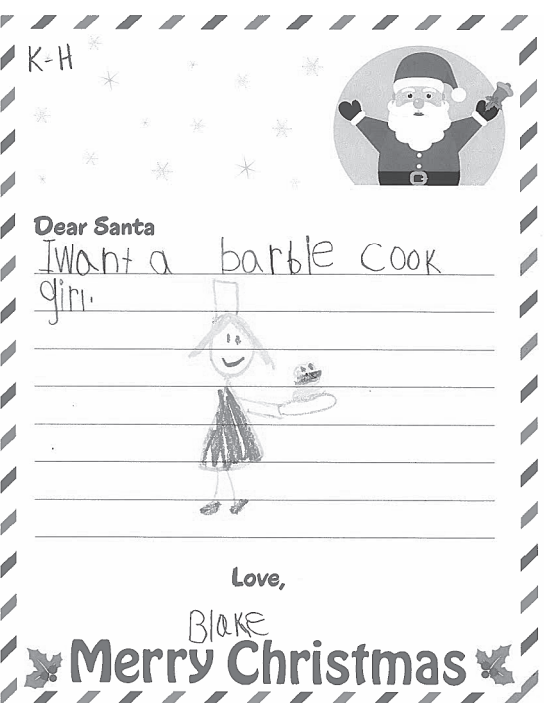 K-H
Dear Santa
I want a barbie cook
girl.
Love,
Blake
Merry Christmas